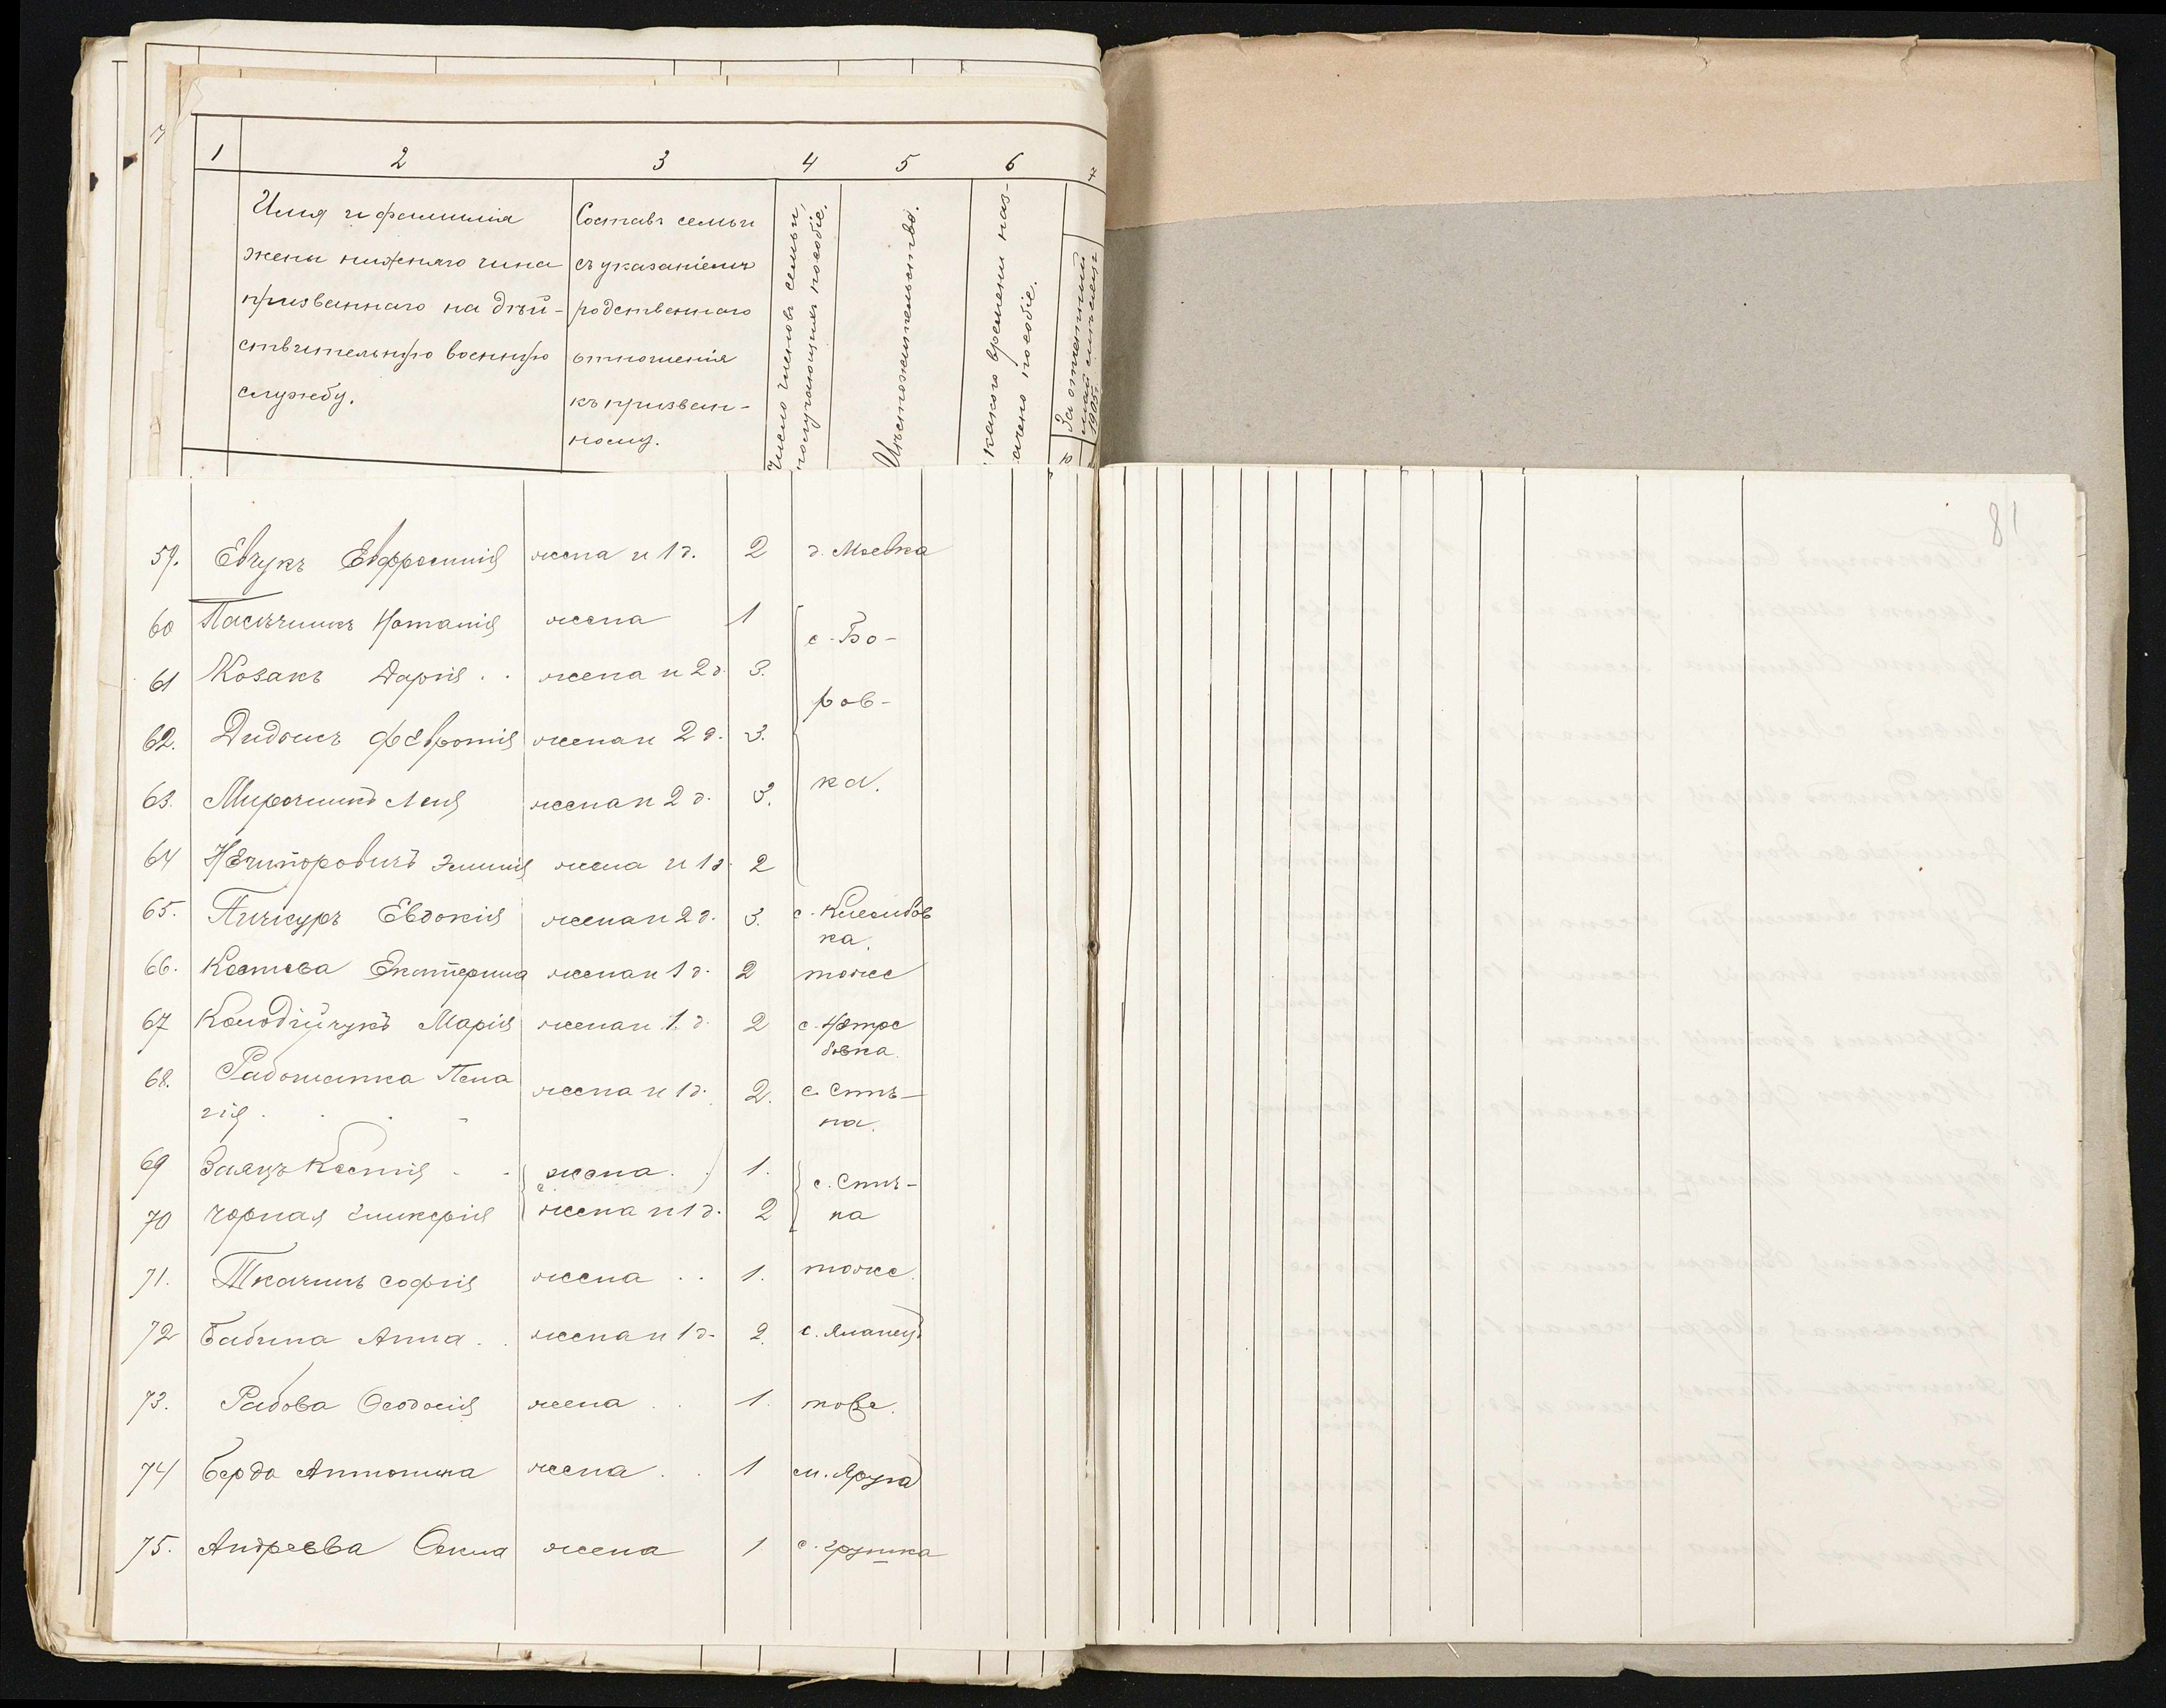 1 2 3 4 5 6 7
Имя и фамилия
жены нижняго чина
призваннаго на дѣй-
ствительную военную
службу.
Составъ семьи
съ указаніемъ
родственнаго
отношенія
къ призван-
ному.
Число членовъ семьи,
получающихъ пособіе.
Мѣстожительство.
какого времени наз-
ачено пособіе.
За
1905
81
59. Евчукъ Евфросинія жена и 1 д. 2 д. Маевка
60 Пасѣчникъ Наталія жена 1
с. Бо-
61 Козакъ Дарія . . жена и 2 д. 3.
ров-
62. Дидыкъ Февронія жена и 2 д. 3.
ка.
63. жена и 2 д. 3.
64 Нечипоровичъ жена и 1 д. 2
65. Пичкуръ Евдокія жена и 2 д. 3. с.
ка.
66. Костева Екатерина жена и 1 д. 2 тоже
67 Колодійчукъ Марія жена и 1 д. 2 с.
68. Пела
гія . . . жена и 1 д. 2. с. Стѣ-
на.
69 Заяцъ Ксенія . . жена . . 1. с. Стѣ-
70 Чорная Гликерія жена и 1 д. 2 на
71. Ткачикъ Софія жена . . 1. тоже.
72 Бабина Анна . . жена и 1 д. 2. с. Яланецъ
73. Рабова Феодосія жена . . 1. тоже.
74 Берда Антонина жена . . 1 м. Яруга
75. Андреева Фекла жена 1 с. Грушка